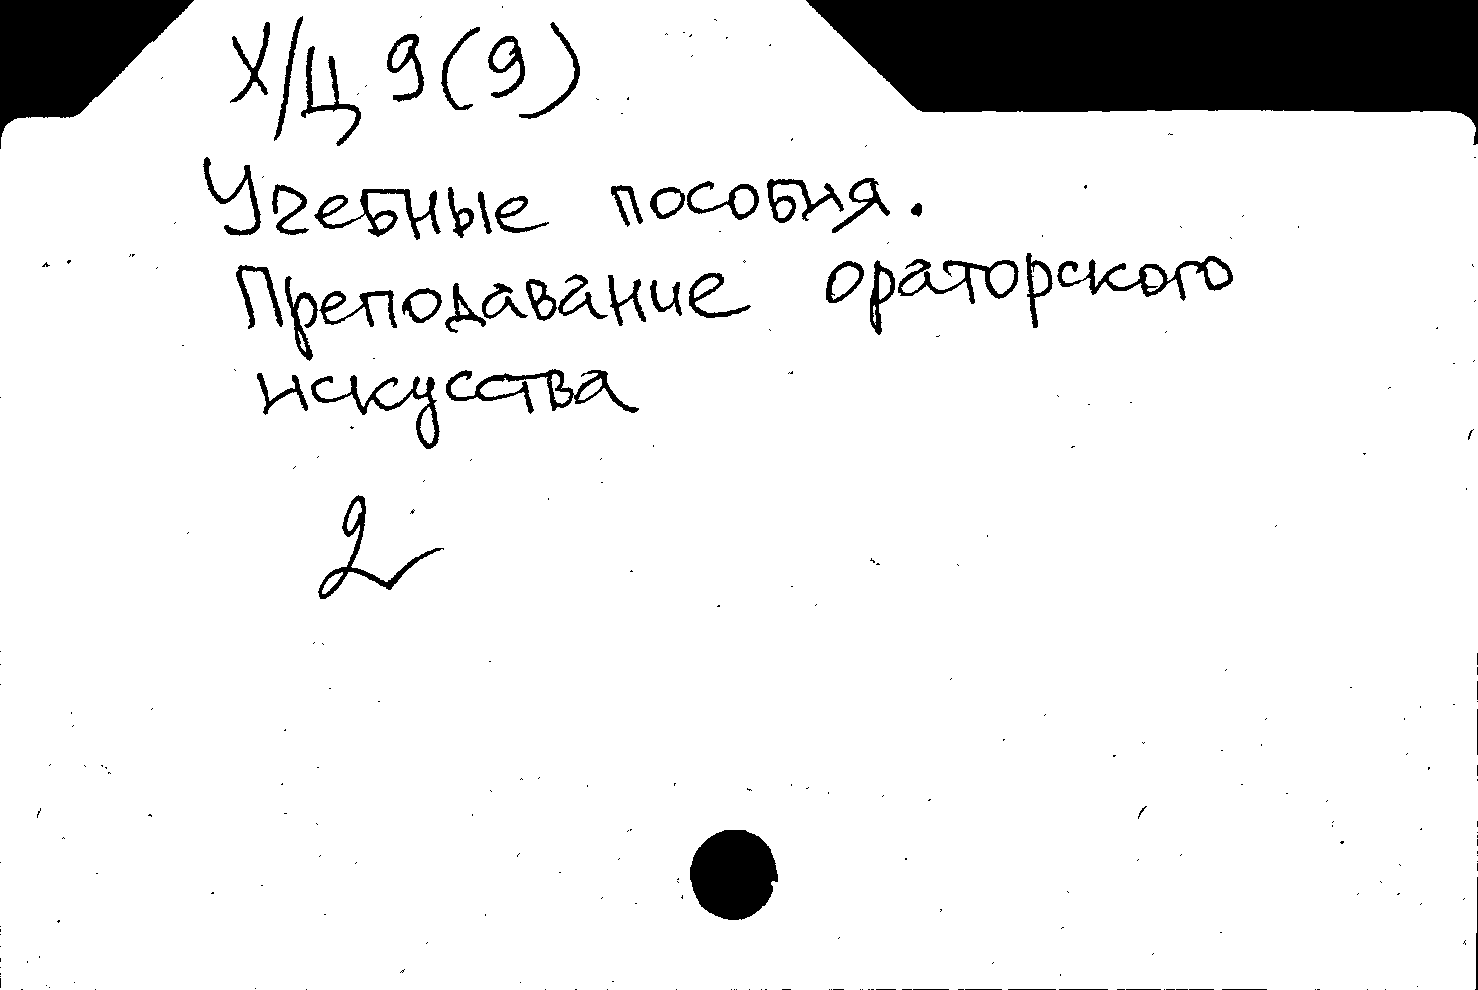 Х/Ц 9(9)
Учебные пособия.
Преподавание ораторского
искусства
2